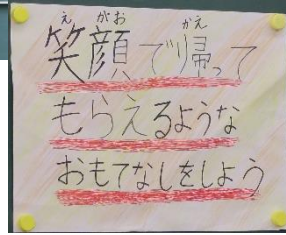 笑顔で帰って
もらえるような
おもてなしをしよう